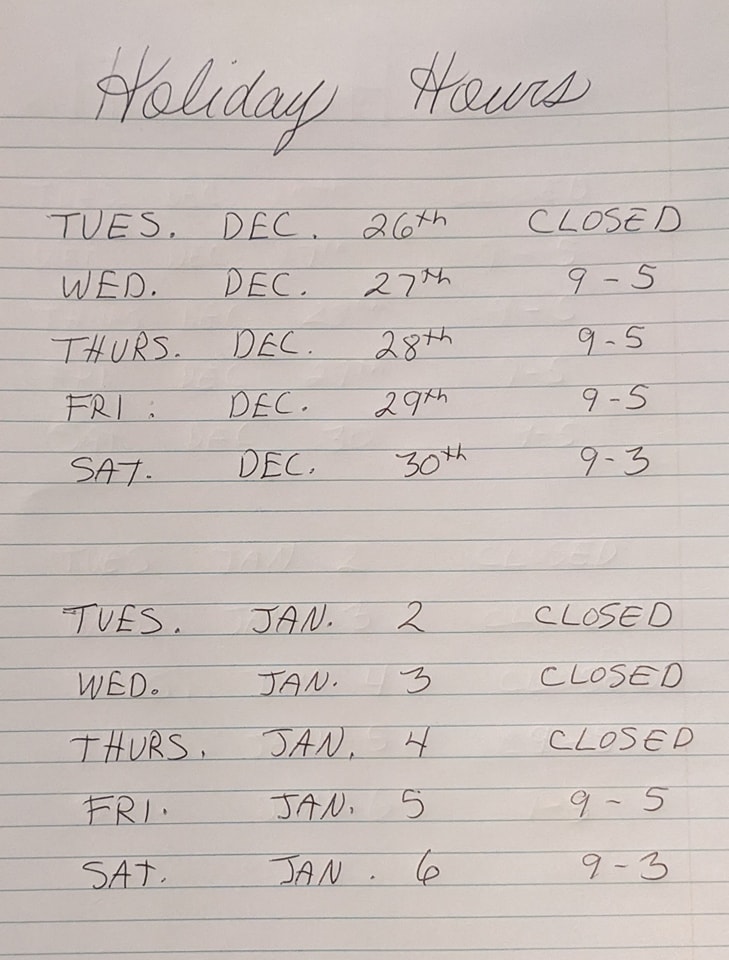 Holiday Hours
TUES. DEC. 26th CLOSED
WED. DEC. 27th 9-5
THURS. DEC. 28th 9-5
FRI. DEC. 29th 9-5
SAT. DEC. 30th 9-3
TUES. JAN. 2 CLOSED
WED. JAN. 3 CLOSED
THURS. JAN. 4 CLOSED
FRI. JAN. 5 9-5
SAT. JAN. 6 9-3